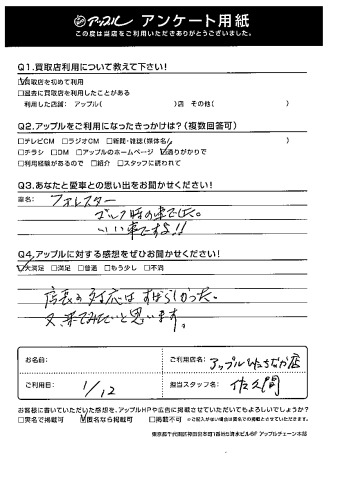 アップル アンケート用紙
この度は当店をご利用いただきありがとうございました。
Q1.買取店利用について教えて下さい!
☑買取店を初めて利用
□過去に買取店を利用したことがある
利用した店舗: アップル( )店 その他( )
Q2.アップルをご利用になったきっかけは?(複数回答可)
□テレビCM □ラジオCM □新聞・雑誌(媒体名/ )
□チラシ □DM □アップルのホームページ ☑通りがかりで
□利用経験があるので □紹介 □スタッフに誘われて
Q3.あなたと愛車との思い出をお聞かせください!
車名: フォレスター
ゴルフ時の車でした。
いい車ですよ!!
Q4.アップルに対する感想をぜひお聞かせください!
☑大満足 □満足 □普通 □もう少し □不満
店長の対応はすばらしかった。
又、来てみたいと思います。
お名前:
ご利用店名: アップルひたちなか店
ご利用日: 1/12
担当スタッフ名: 佐久間
お客様に書いていただいた感想を、アップルHPや広告に掲載させていただいてもよろしいでしょうか?
□実名で掲載可 ☑匿名なら掲載可 □掲載不可 ※ご記入が無い場合は匿名での掲載とさせていただきます。
東京都千代田区神田日本町1番地5清水ビル6F アップルチェーン本部